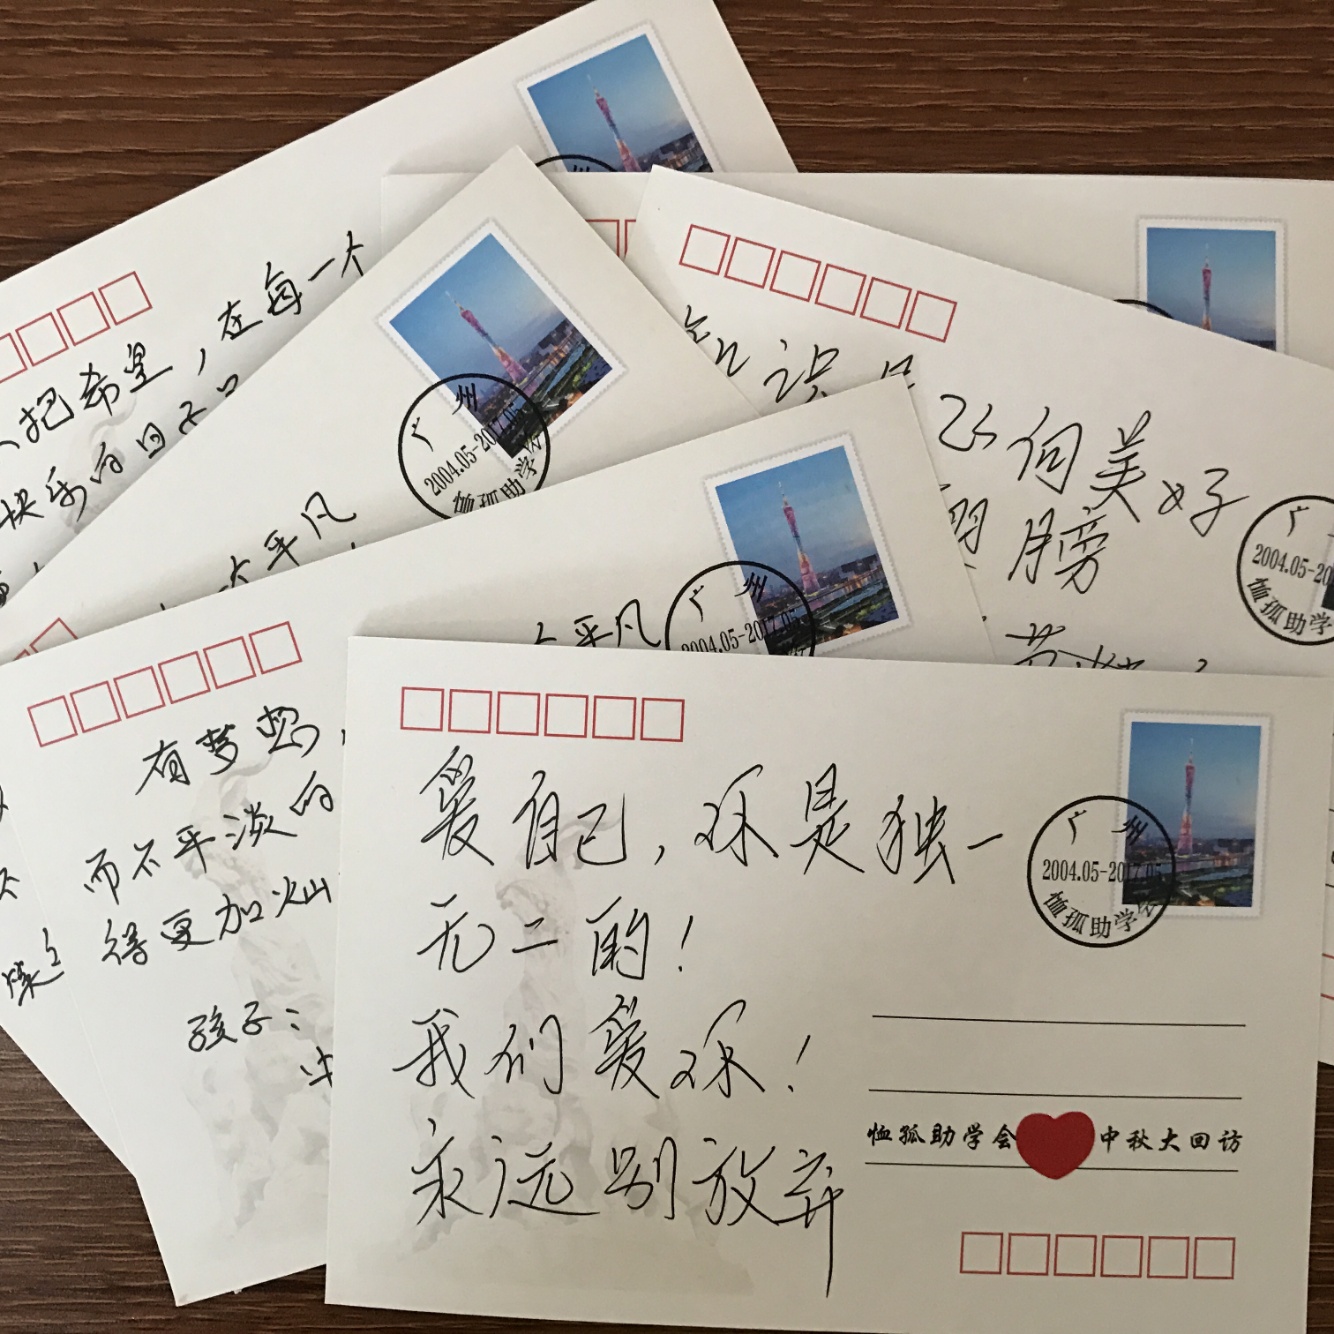 把希望，在每一个
快乐的日子
太平凡
广州
2004.05-2017.05
恤孤助学会
知识是
任何美好
翅膀
广
2004.05-20
恤孤助学
太平凡
广州
2004.05-2017.05
有梦想，
而不平淡的
得更加灿
孩子：
爱自己，你是独一
无二的！
我们爱你！
永远别放弃
广州
2004.05-2017.05
恤孤助学会
恤孤助学会 中秋大回访